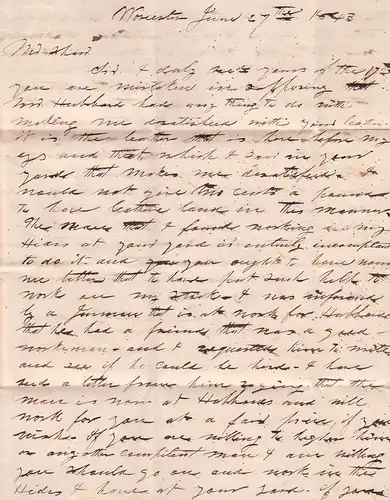 Worcester June 27th 1843
Mr Shaw
Sir I duly recd yours of the 17th
you are mistaken in supposing that
Mr Hubbard had any thing to do with
making me dissatisfied with your leather
it is the leather that is here before my
eys and that which I saw in your
yards that makes me dissatisfied I
would not give two cents a pound
to have leather tand in this manner
The man that I found working in my
Hides at your yard is entirely incompitent
to do it and you ought to have known
better that to have put such help to
work on my stock I was informed
by a Journeman that is at work for Hubbard
that he had a friend that was a good
workeman and I requested him to write
and see if he could be had I have
recd a letter from him saying that the
man is now at Hubbards and will
work for you at a fair price if you
wish If you are willing to higher him
or any other compitent man I am willing
you should go on and work in the
Hides I have at your yard if you